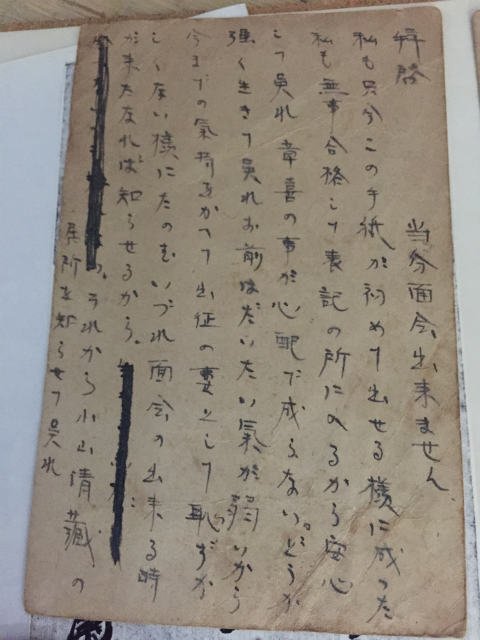 拝啓 当分面会出来ません。
私も只今この手紙が初めて出せる様に成った
私も無事合格して表記の所に入るから安心
して呉れ 章喜の事が心配で成らない。どうか
強く生きて呉れお前はだいたい氣が弱いから
今までの氣持をかへて出征の妻として恥ずか
しくない様にたのむいづれ面会の出来る時
が来たなれば知らせるから。
それから小山情藏の
居所を知らせて呉れ